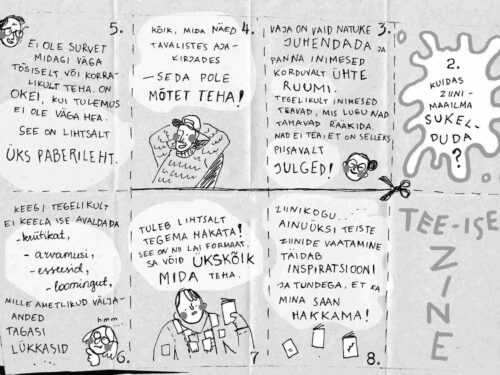 5.
EI OLE SURVET
MIDAGI VÄGA
TÕSISELT VÕI KORRA-
LIKULT TEHA. ON
OKEI, KUI TULEMUS
EI OLE VÄGA HEA.
SEE ON LIHTSALT
ÜKS PABERILEHT.
4.
KÕIK, MIDA NÄED
TAVALISTES AJA-
KIRJADES
– SEDA POLE
MÕTET TEHA!
3.
VAJA ON VAID NATUKE
JUHENDADA JA
PANNA INIMESED
KORDUVALT ÜHTE
RUUMI.
TEGELIKULT INIMESED
TEAVAD, MIS LUGU NAD
TAHAVAD RÄÄKIDA.
NAD EI TEA/ET ON SELLEKS
PIISAVALT
JULGED!
2.
KUIDAS
ZIINI-
MAAILMA
SUKEL-
DUDA
?
KEEGI TEGELIKULT
EI KEELA ISE AVALDADA
- kriitikat,
- arvamusi,
- esseesid,
- loomingut,
MILLE AMETLIKUD VÄLJA-
ANDED
TAGASI
LÜKKASID
hmm...
6.
TULEB LIHTSALT
TEGEMA HAKATA!
SEE ON NII LAI FORMAAT.
SA VÕID ÜKSKÕIK
MIDA TEHA.
7
ZIINIKOGU...
AINUÜKSI TEISTE
ZIINIDE VAATAMINE
TÄIDAB
INSPIRATSIOONI
JA TUNDEGA, ET KA
MINA SAAN
HAKKAMA!
8.
TEE-ISE
ZINE